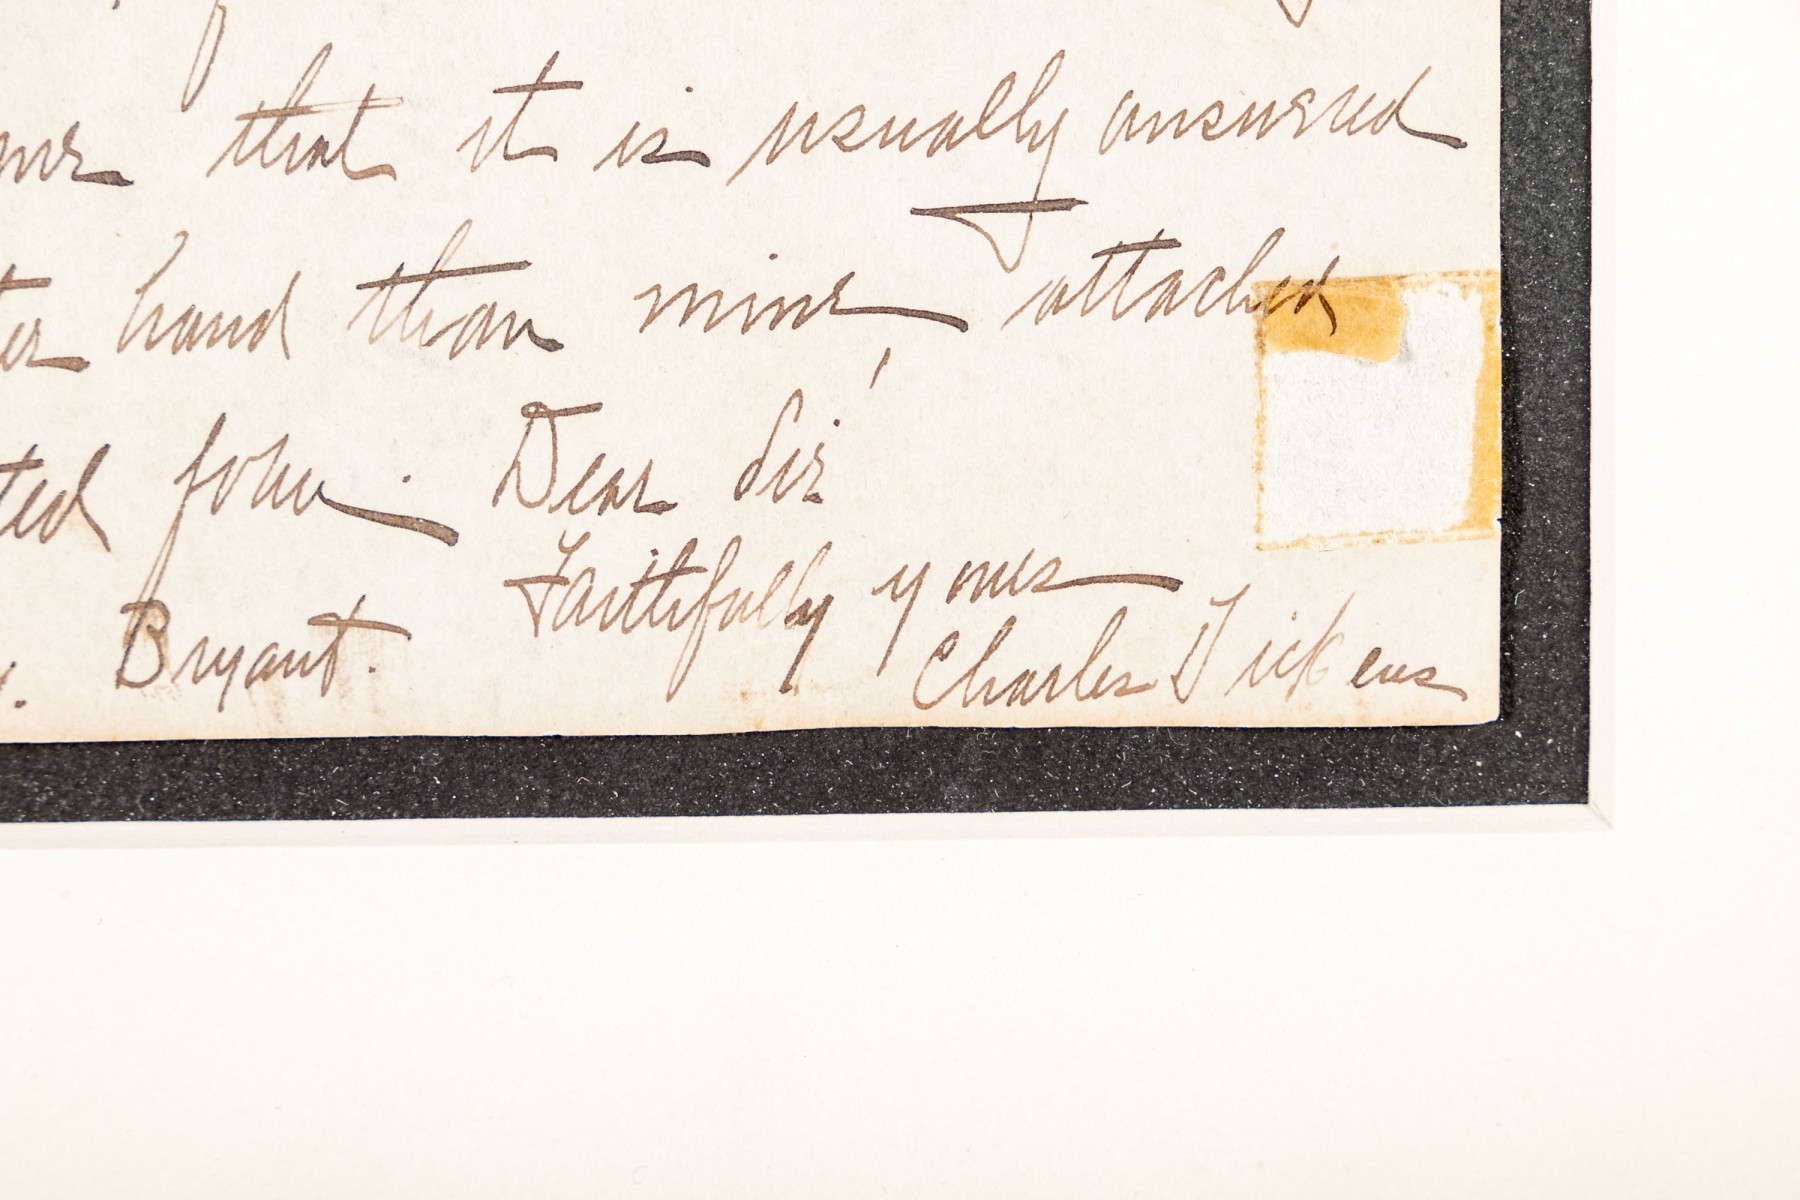 that it is usually answered
hand than mine, attached
Dear Sir
Faithfully yours
Bryant.
Charles Dickens